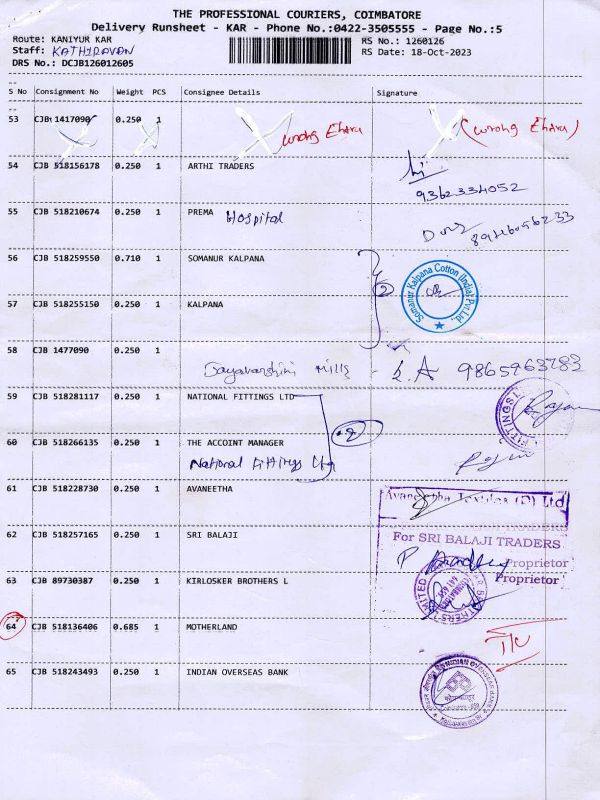 THE PROFESSIONAL COURIERS, COIMBATORE
Delivery Runsheet - KAR - Phone No.:0422-3505555 - Page No.:5
Route: KANIYUR KAR RS No.: 1260126
Staff: KATHIRAVAN RS Date: 18-Oct-2023
DRS No.: DCJB126012605
S No Consignment No Weight PCS Consignee Details Signature
53 CJB 1417090 0.250 1 (wrong Entry)
54 CJB 518156178 0.250 1 ARTHI TRADERS
9362334052
55 CJB 518210674 0.250 1 PREMA Hospital
56 CJB 518259550 0.710 1 SOMANUR KALPANA 2
Somanur Kalpana Cotton (India) Pvt Ltd.
57 CJB 518255150 0.250 1 KALPANA
58 CJB 1477090 0.250 1
Jayavarshini Mills - 9865963783
59 CJB 518281117 0.250 1 NATIONAL FITTINGS LTD
60 CJB 518266135 0.250 1 THE ACCOINT MANAGER 2
National Fittings Ltd
61 CJB 518228730 0.250 1 AVANEETHA
Avaneetha Textiles (P) Ltd
62 CJB 518257165 0.250 1 SRI BALAJI
For SRI BALAJI TRADERS
Proprietor
Proprietor
63 CJB 89730387 0.250 1 KIRLOSKER BROTHERS L
64 CJB 518136406 0.685 1 MOTHERLAND
65 CJB 518243493 0.250 1 INDIAN OVERSEAS BANK
INDIAN OVERSEAS BANK